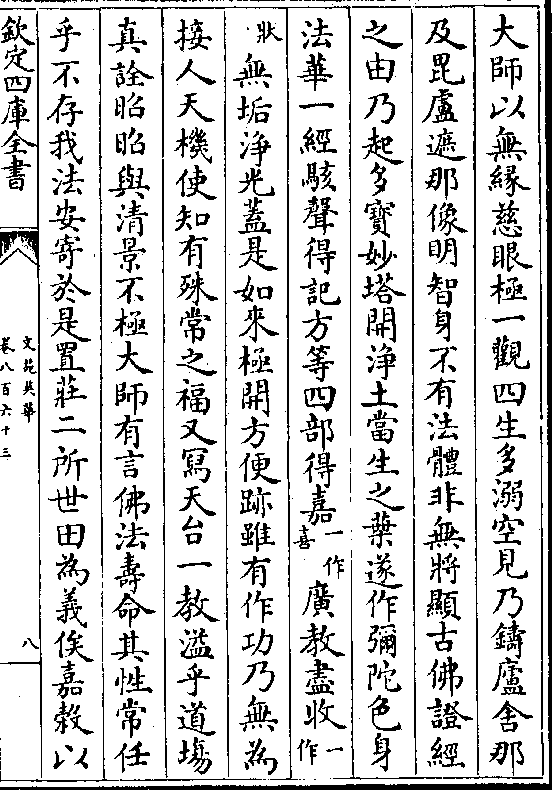 大師以無緣慈眼極一觀四生多溺空見乃鑄廬舍那
及毘盧遮那像明智身不有法體非無將顯古佛證經
之由乃起多寶妙塔開淨土當生之藥遂作彌陀色身
法華一經駭聲得記方等四部得嘉一作喜廣教盡收一作
狀無垢淨光蓋是如來極開方便跡雖有作功乃無為
接人天機使知有殊常之福又寫天台一教溢乎道場
真詮昭昭與清景不極大師有言佛法壽命其性常任
乎不存我法安寄於是置莊二所世田為義俟嘉穀以
欽定四庫全書
文苑英華
卷八百六十三
八